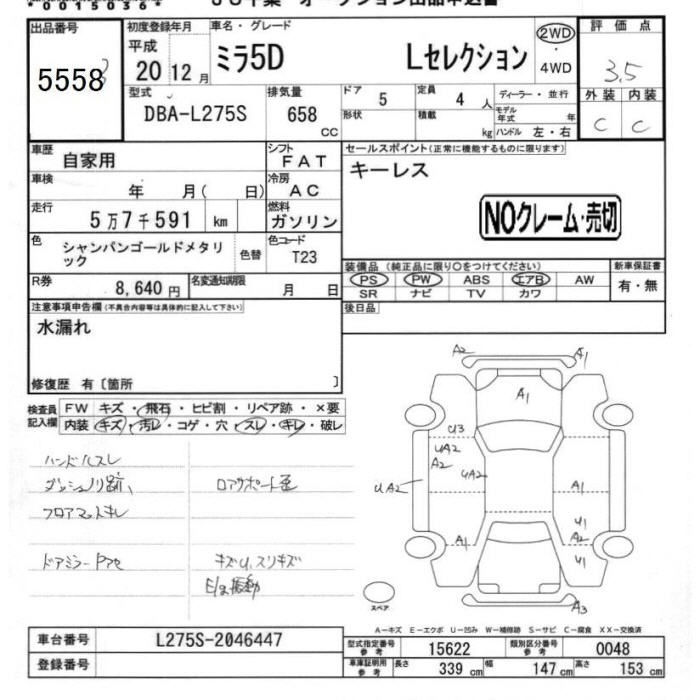 *0015036*
出品番号
5558
初度登録年月
平成
20 12 月
車名・グレード
ミラ5D Lセレクション
2WD
4WD
評価点
3.5
外装 内装
C C
型式
DBA-L275S
排気量
658 CC
ドア 5
形状
定員 4 人
積載 kg
ディーラー・並行
モデル年式 年
ハンドル 左・右
車歴
自家用
シフト
FAT
セールスポイント(正常に機能するものに限ります)
キーレス
車検
年 月( 日)
冷房
AC
走行
5万7千591 km
燃料
ガソリン
NOクレーム・売切
色
シャンパンゴールドメタリック
色替
色コード
T23
装備品 (純正品に限り○をつけてください)
新車保証書
PS PW ABS エアB AW
有・無
SR ナビ TV カワ
R券
8,640 円
名変通知期限
月 日
後日品
注意事項申告欄(不具合内容等は具体的に記入して下さい)
水漏れ
修復歴 有〔箇所 〕
検査員記入欄
FW キズ・飛石・ヒビ割・リペア跡・×要
内装 キズ・汚レ・コゲ・穴・スレ・キレ・破レ
ハンドルスレ
ダッシュノリ跡、
ロアサポート歪
フロアマットキレ
ドアミラー
キズU、スリキズ
E/g振動
A2 A1
A1
U3
UA2
A2
UA2
UA2
A1
A1
U1
A2
U1
A3
スペア
A―キズ E―エクボ U―凹み W―補修跡 S―サビ C―腐食 XX―交換済
車台番号 L275S-2046447
登録番号
型式指定番号 参考 15622
類別区分番号 参考 0048
車庫証明用 参考 長さ 339 cm 幅 147 cm 高さ 153 cm